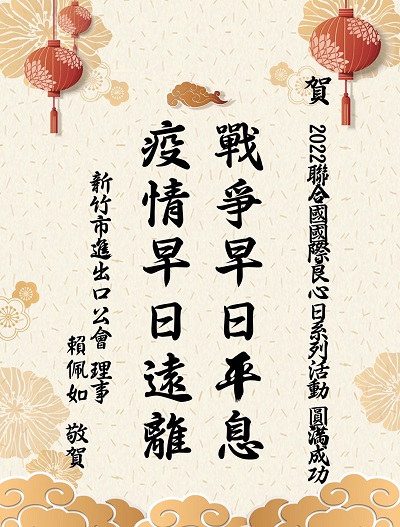 賀 2022聯合國國際良心日系列活動 圓滿成功
戰爭早日平息
疫情早日遠離
新竹市進出口公會 理事
賴佩如 敬賀